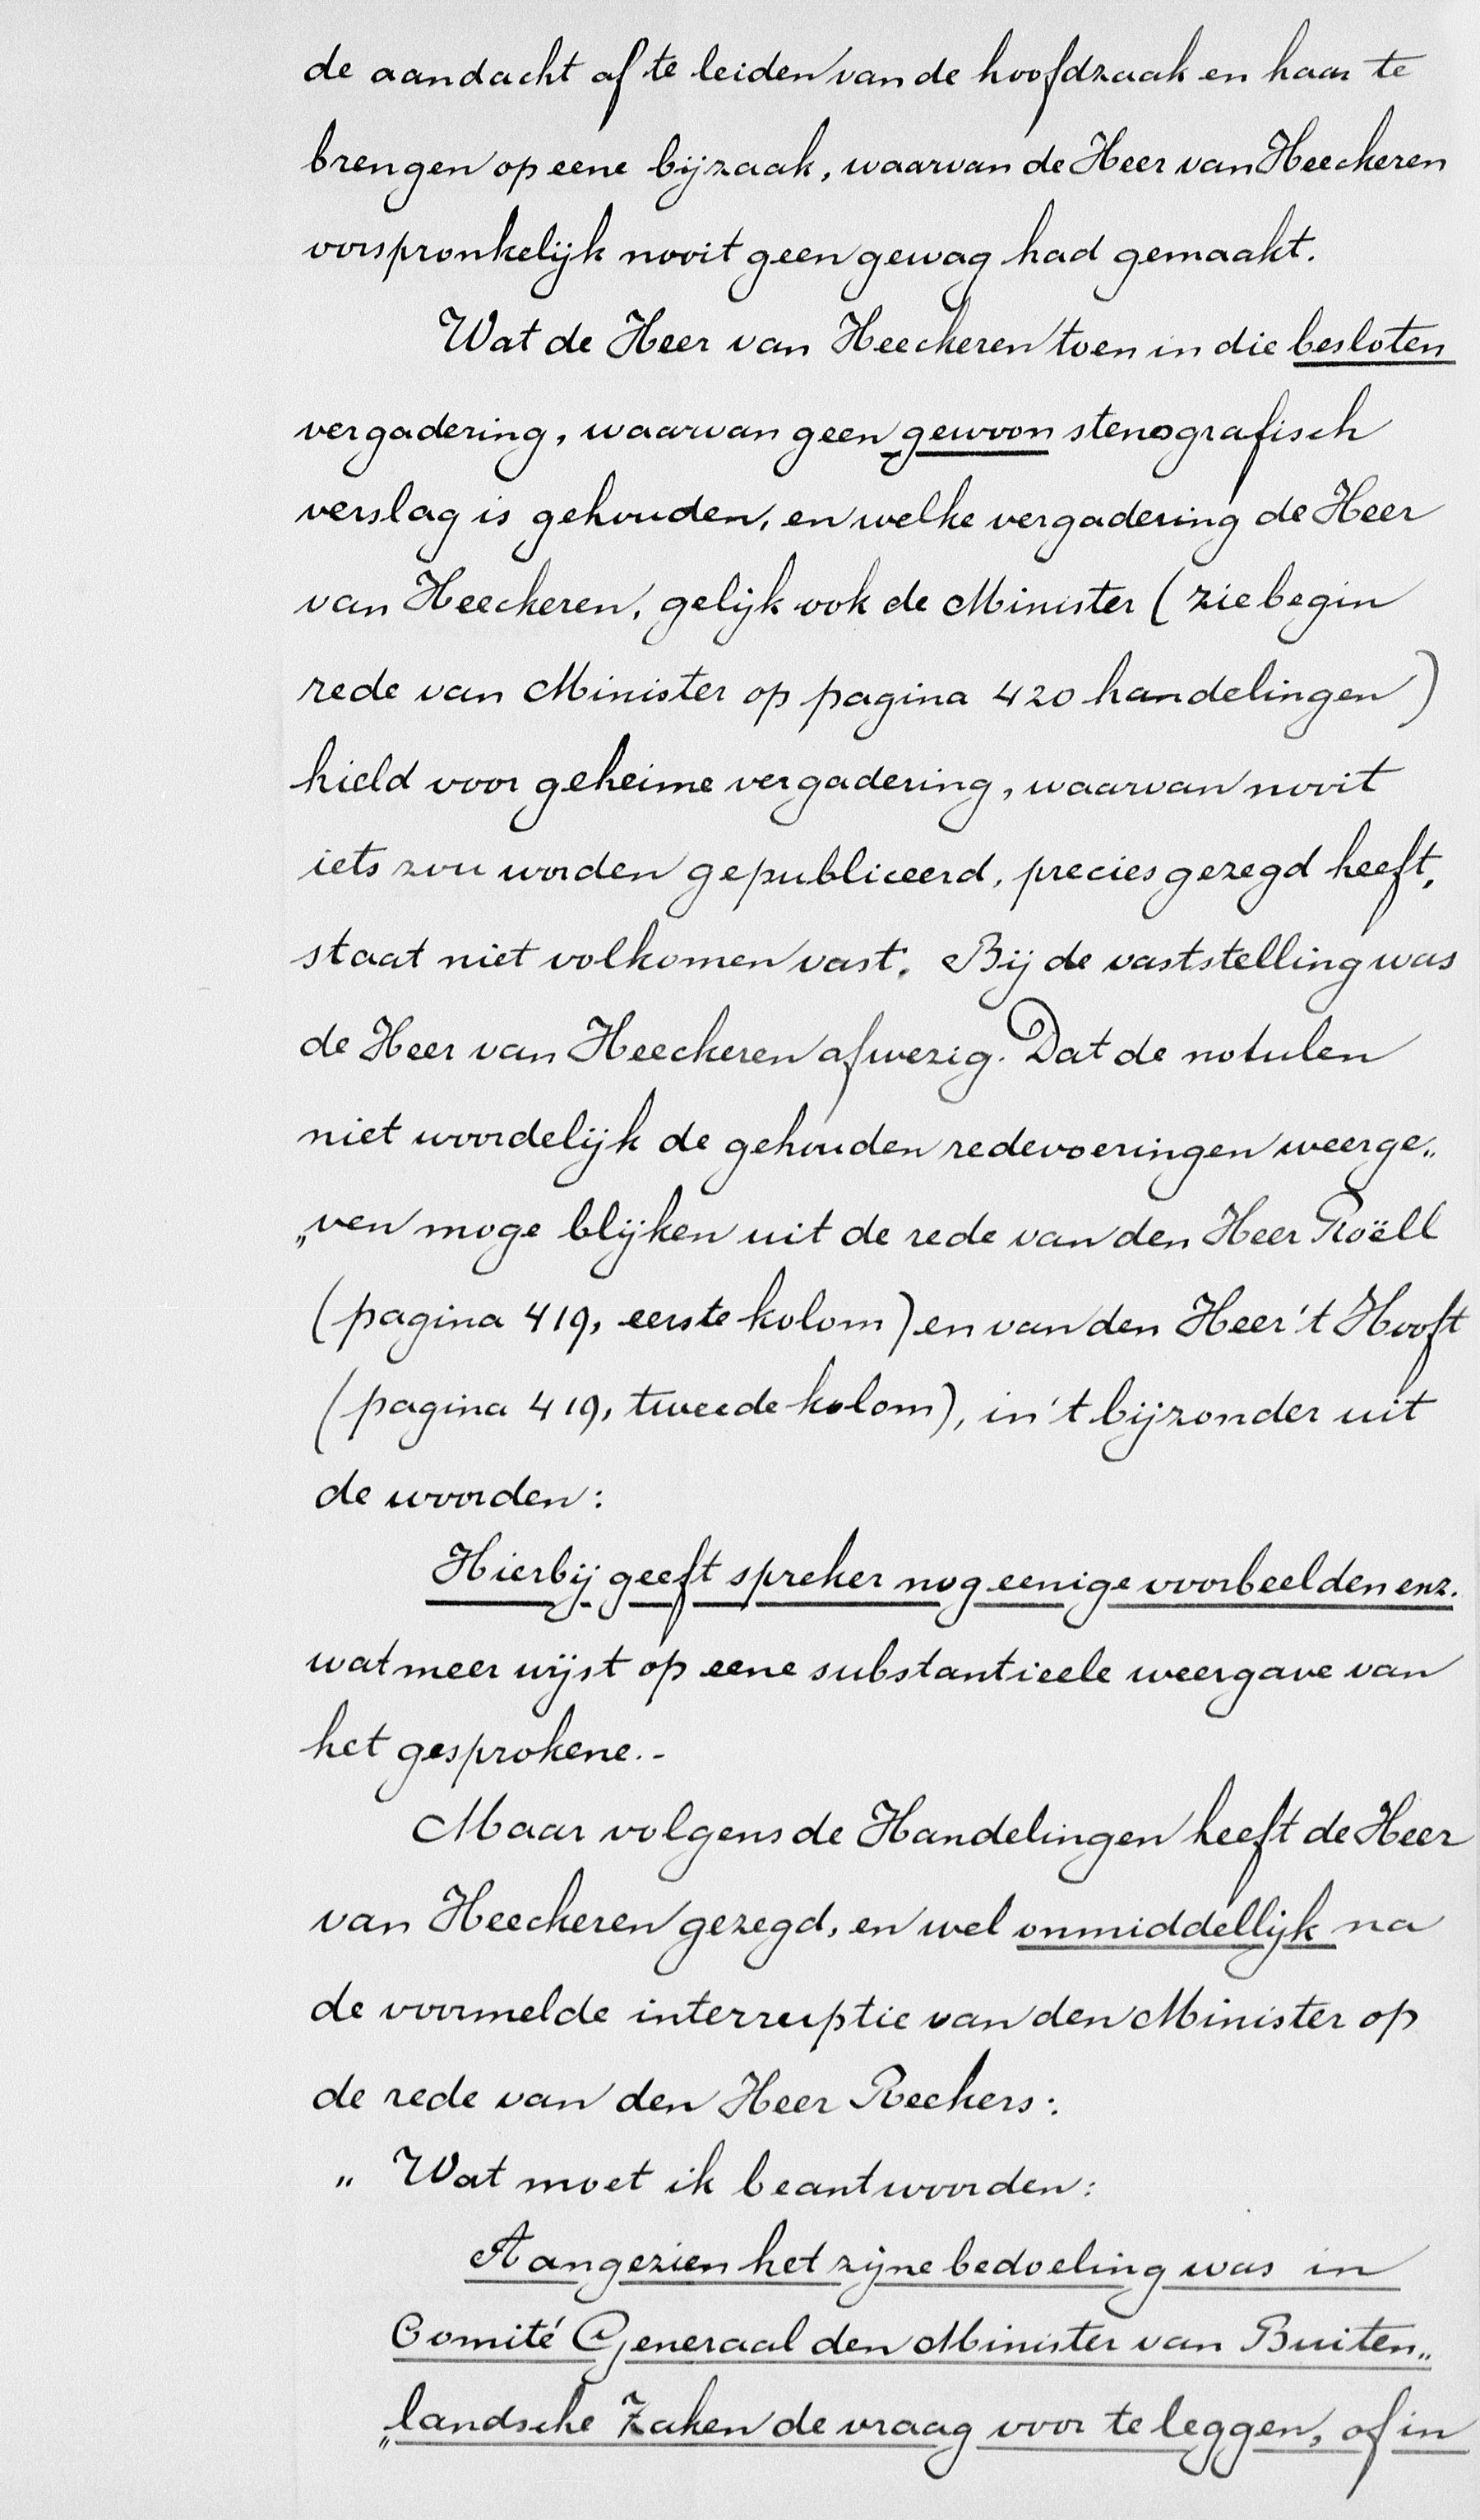 de aandacht af te leiden van de hoofdzaak en haar te
brengen op eene bijzaak, waarvan de Heer van Heeckeren
oorspronkelijk nooit geen gewag had gemaakt.
Wat de Heer van Heeckeren toen in die besloten
vergadering, waarvan geen gewoon stenografisch
verslag is gehouden, en welke vergadering de Heer
van Heeckeren, gelijk ook de Minister (zie begin
rede van Minister op pagina 420 handelingen)
hield voor geheime vergadering, waarvan nooit
iets zou worden gepubliceerd, precies gezegd heeft,
staat niet volkomen vast. Bij de vaststelling was
de Heer van Heeckeren afwezig. Dat de notulen
niet woordelijk de gehouden redevoeringen weerge„
„ven moge blijken uit de rede van den Heer Roëll
(pagina 419, eerste kolom) en van den Heer 't Hooft
(pagina 419, tweede kolom), in 't bijzonder uit
de woorden:
Hierbij geeft spreker nog eenige voorbeelden enz.
wat meer wijst op eene substantieele weergave van
het gesprokene.-
Maar volgens de Handelingen heeft de Heer
van Heeckeren gezegd, en wel onmiddellijk na
de voormelde interruptie van den Minister op
de rede van den Heer Reekers:
„ Wat moet ik beantwoorden:
Aangezien het zijne bedoeling was in
Comité Generaal den Minister van Buiten„
„landsche Zaken de vraag voor te leggen, of in